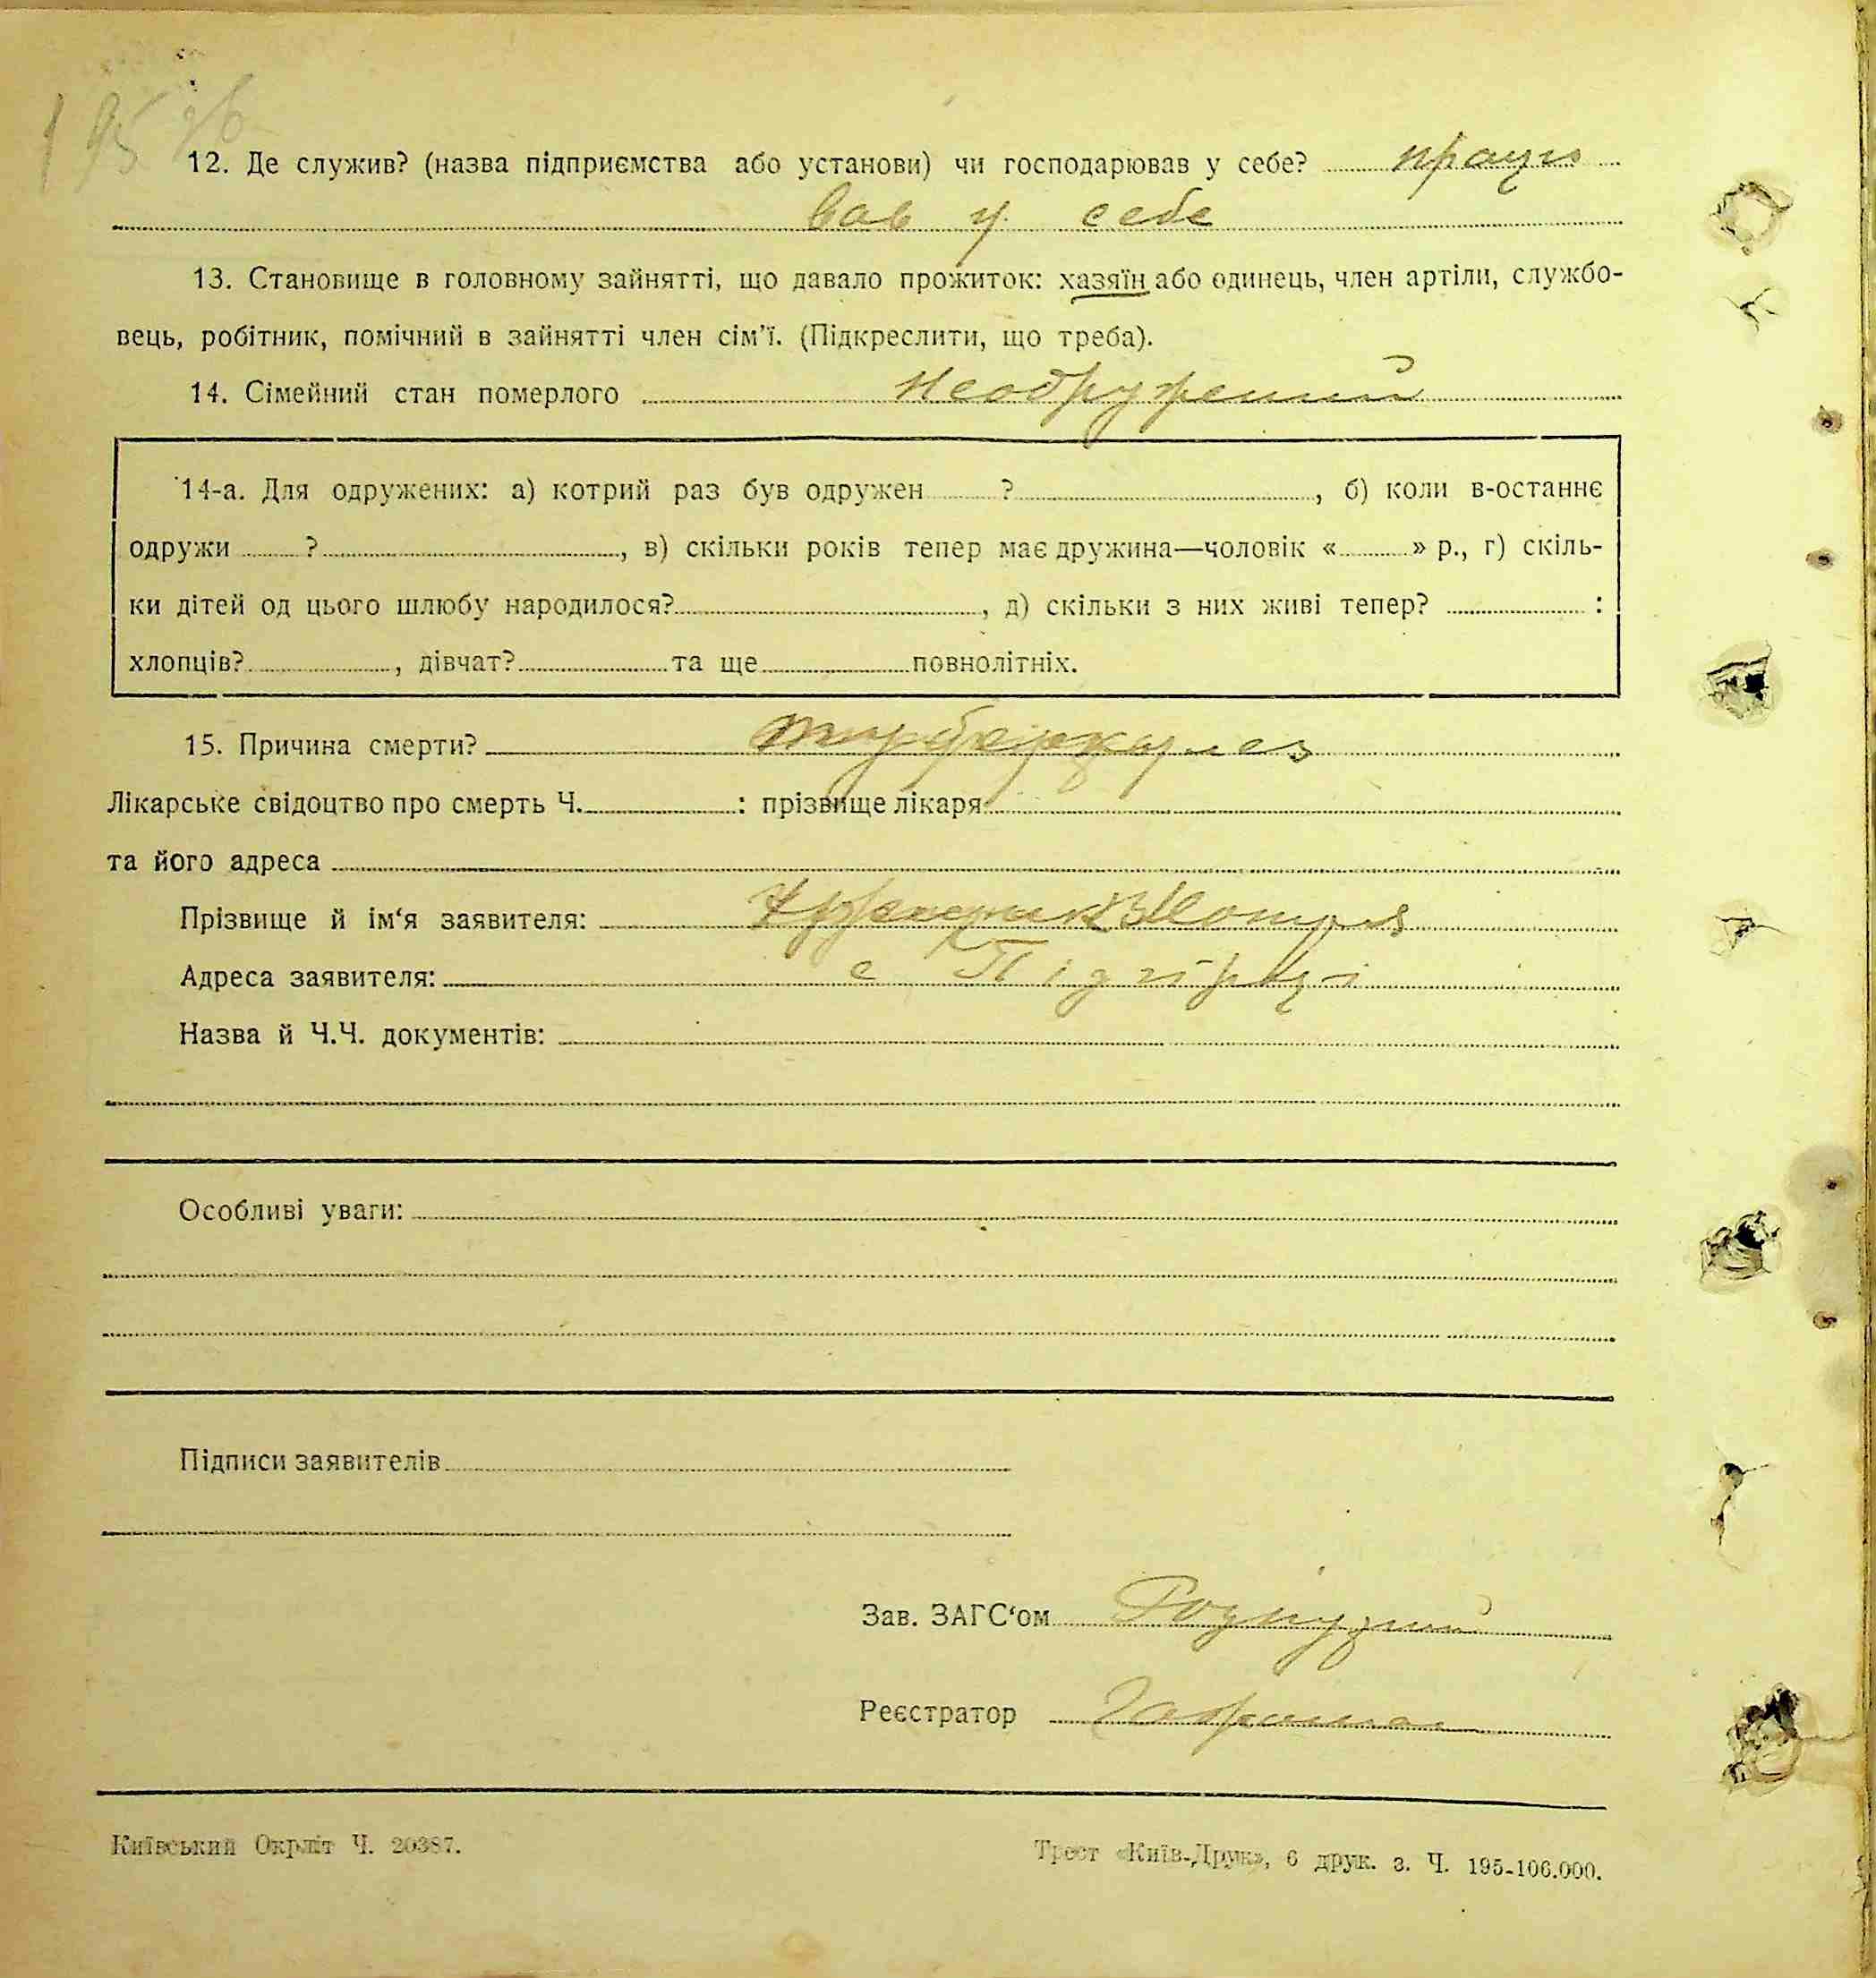 195
12. Де служив? (назва підприємства або установи) чи господарював у себе? працю
вав у себе
13. Становище в головному зайнятті, що давало прожиток: хазяїн або одинець, член артіли, службо-
вець, робітник, помічний в зайнятті член сім'ї. (Підкреслити, що треба).
14. Сімейний стан померлого неодружений
14-а. Для одружених: а) котрий раз був одружен ? , б) коли в-останнє
одружи ? , в) скільки років тепер має дружина—чоловік « » р., г) скіль-
ки дітей од цього шлюбу народилося? , д) скільки з них живі тепер? :
хлопців? , дівчат? та ще повнолітніх.
15. Причина смерти?
Лікарське свідоцтво про смерть Ч. : прізвище лікаря
та його адреса
Прізвище й ім'я заявителя:
Адреса заявителя: с Підгірці
Назва й Ч.Ч. документів:
Особливі уваги:
Підписи заявителів
Зав. ЗАГС'ом
Реєстратор
Київський Окрліт Ч. 20387.
Трест «Київ-Друк», 6 друк. з. Ч. 195-106.000.